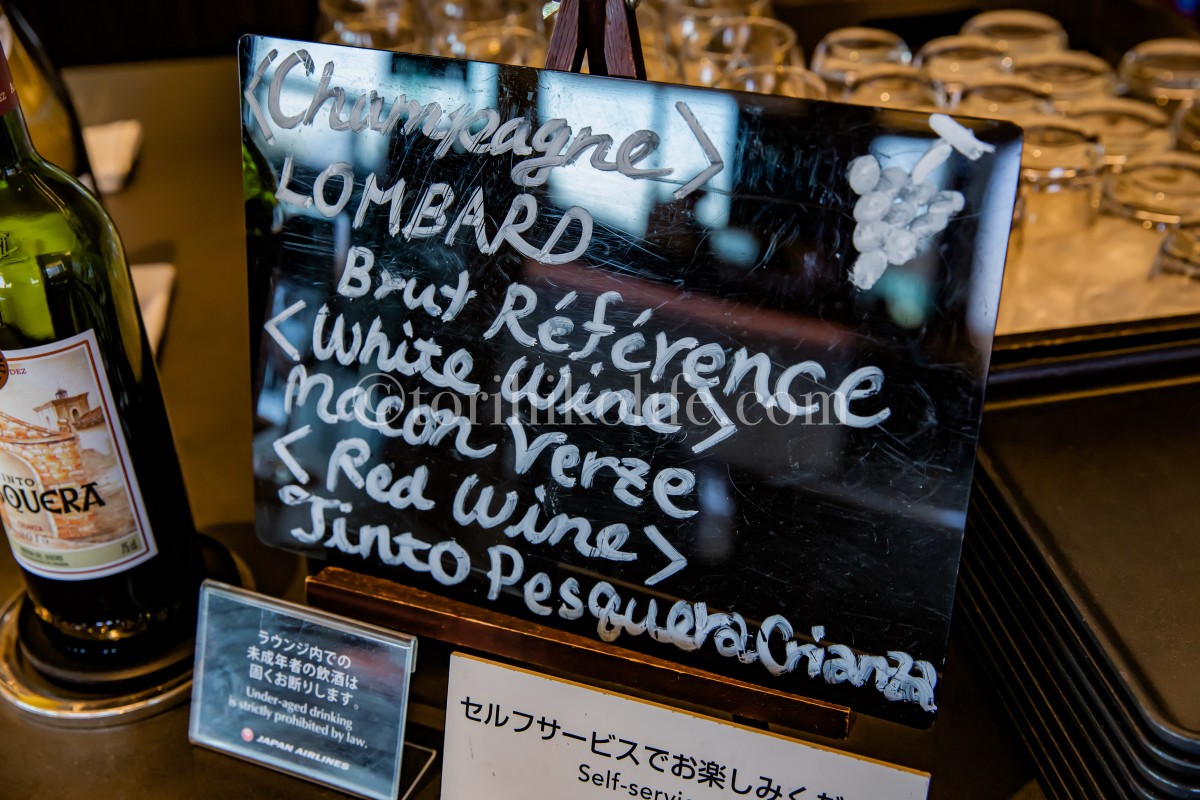 <Champagne>
LOMBARD
Brut Référence
<White Wine>
Macon Verze
<Red Wine>
Tinto Pesquera Crianza
©torihikolife.com
INTO
QUERA
CRIANZA
ラウンジ内での
未成年者の飲酒は
固くお断りします。
Under-aged drinking
is strictly prohibited by law.
JAPAN AIRLINES
セルフサービスでお楽しみくだ
Self-servi